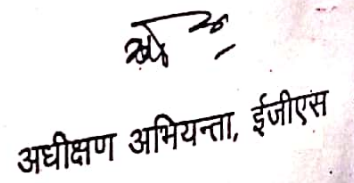 अधीक्षण अभियन्ता, ईजीएस